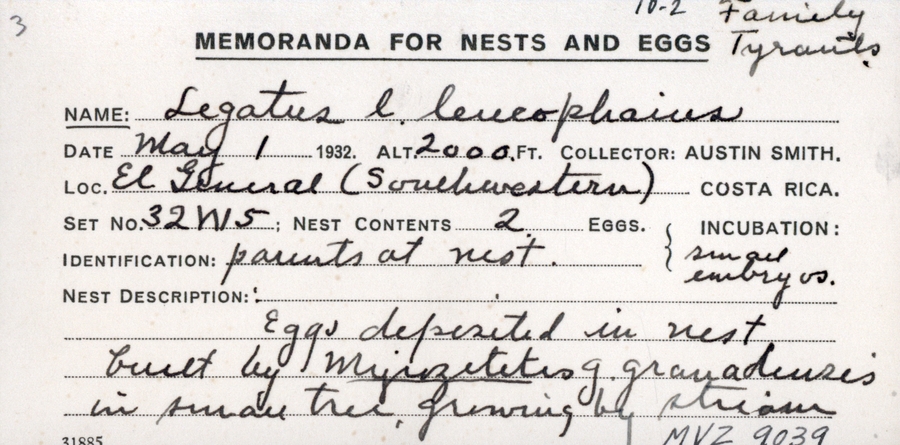 3
10-2 Family
MEMORANDA FOR NESTS AND EGGS Tyrants.
NAME: Legatus l. leucophaius
DATE May 1 1932. ALT. 2000. FT. COLLECTOR: AUSTIN SMITH.
LOC. El General (Southwestern) COSTA RICA.
SET NO. 32W5; NEST CONTENTS 2 EGGS. INCUBATION:
IDENTIFICATION: parents at nest. small
embryos.
NEST DESCRIPTION:
Eggs deposited in nest
built by Myiozetetes g. granadensis
in small tree, growing by stream
31885 MVZ 9039